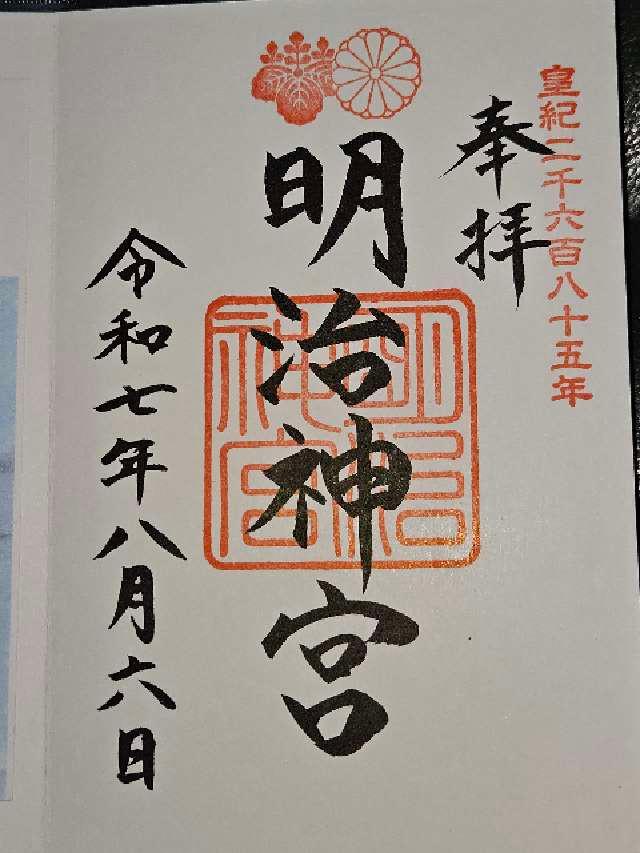 皇紀二千六百八十五年
奉拝
明治神宮
明治神宮
令和七年八月六日